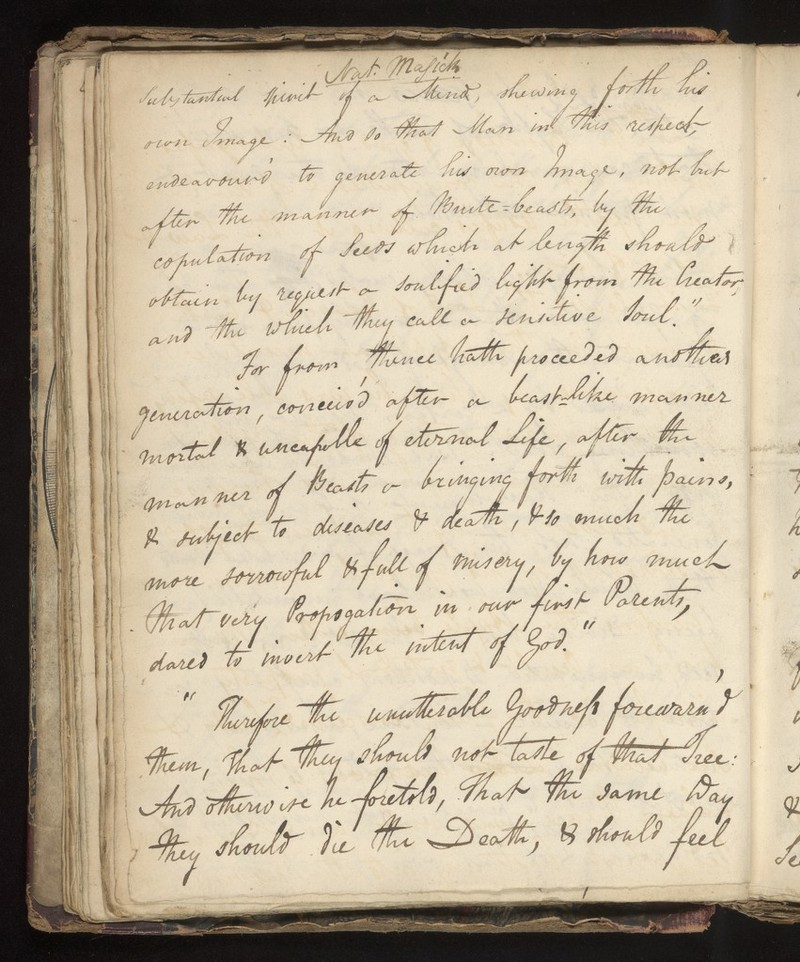 Nat: Magick
Substantial Spirit of a Mind, shewing forth his
own Image: And so that Man in this respect,
endeavour'd to generate his own Image, not but
after the manner of Brute=beasts, by the
copulation of Seeds which at length should
obtain by request a soulified light from the Creator,
and the which they call a sensitive Soul."
For from thence hath proceeded another
generation, conceiv'd after a beast=like manner
mortal & uncapable of eternal Life, after the
manner of Beasts a bringing forth with pains,
& subject to diseases & death, & so much the
more sorrowful & full of misery, by how much
that very Propogation in our first Parents,
dared to invert the intent of God."
" Therefore the unutterable Goodness forewarn'd
them, That they should not taste of that Tree:
And otherwise he foretold, That the same Day
they should die the Death, & should feel